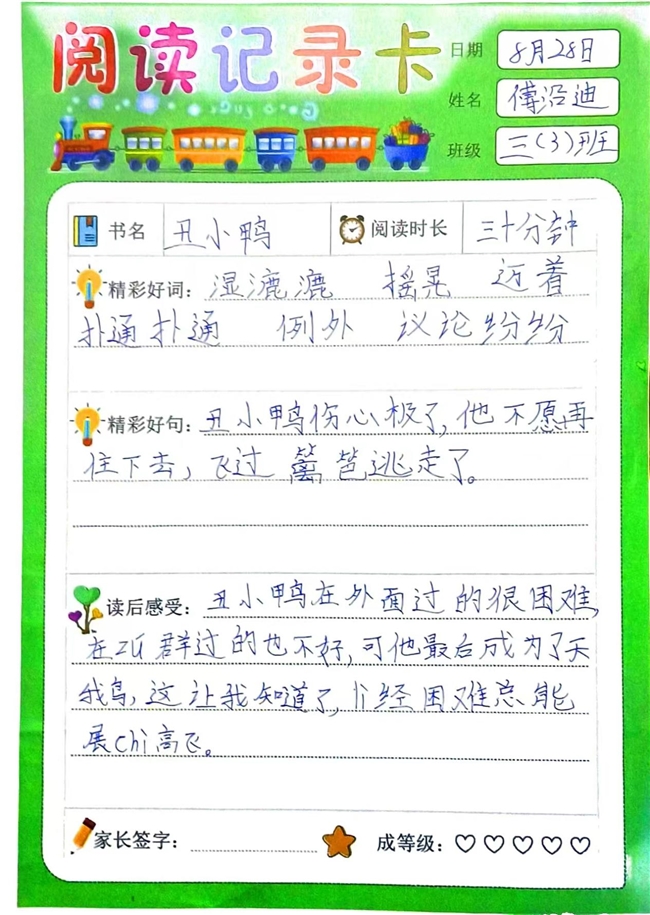 阅读记录卡
日期 8月28日
姓名 傅沿迪
班级 三(3)班
书名 丑小鸭 阅读时长 三十分钟
精彩好词: 湿漉漉 摇晃 迈着
扑通扑通 例外 议论纷纷
精彩好句: 丑小鸭伤心极了,他不愿再
住下去,飞过篱笆逃走了。
读后感受: 丑小鸭在外面过的很困难,
在zū群过的也不好,可他最后成为了天
我鸟,这让我知道了,经困难总能
展chi高飞。
家长签字: 成等级: